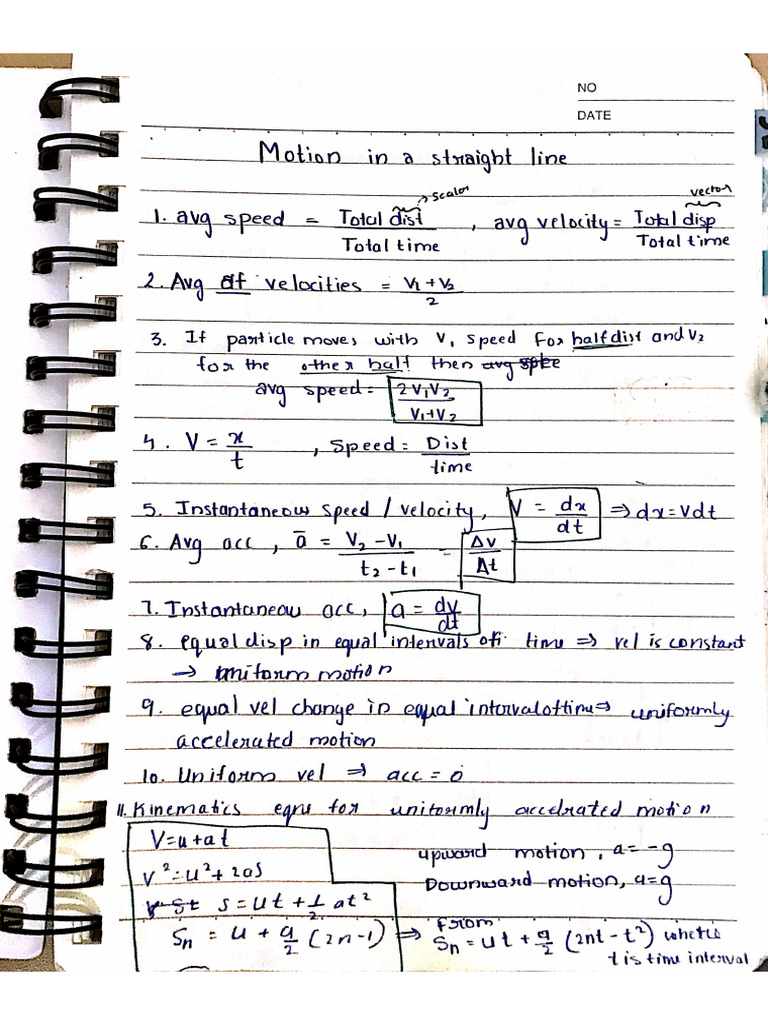 NO
DATE
Motion in a straight line
→ scalar
vector
1. avg speed = Total dist / Total time , avg velocity = Total disp / Total time
2. Avg of velocities = V₁ + V₂ / 2
3. If particle moves with V₁ speed for half dist and V₂
for the other half then
avg speed = 2V₁V₂ / V₁+V₂
4. V = x / t , Speed = Dist / time
5. Instantaneous speed / velocity, V = dx / dt ⇒ dx = Vdt
6. Avg acc, a̅ = V₂ - V₁ / t₂ - t₁ = Δv / Δt
7. Instantaneou acc, a = dv / dt
8. equal disp in equal intervals of time ⇒ vel is constant
→ uniform motion
9. equal vel change in equal interval of time ⇒ uniformly
accelerated motion
10. Uniform vel ⇒ acc = 0
11. Kinematics eqns for uniformly accelrated motion
V = u + at
upward motion, a = -g
V² = u² + 2as
Downward motion, a = g
s = ut + 1/2 at²
Sₙ = u + a/2 (2n-1) ⇒ from Sₙ = ut + a/2 (2nt - t²) where
t is time interval